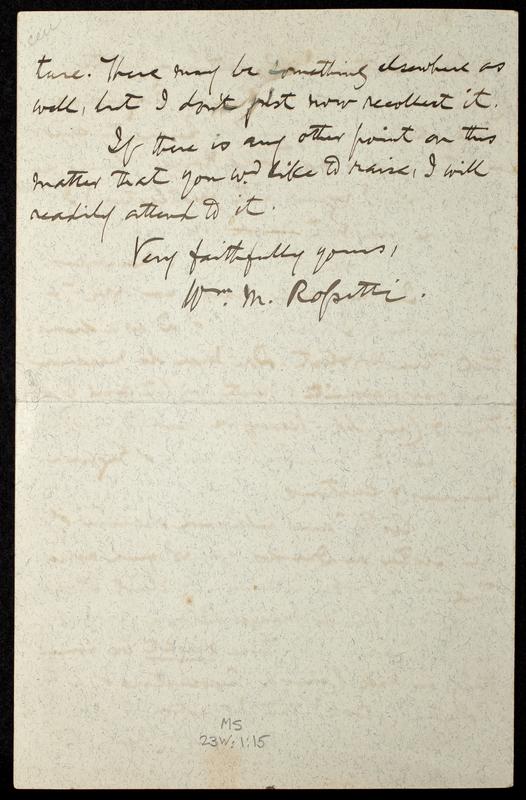 ture. There may be something elsewhere as
well, but I don't just now recollect it.
If there is any other point on this
matter that you wd. like to raise, I will
readily attend to it.
Very faithfully yours,
Wm. M. Rossetti.
MS
23W:1:15